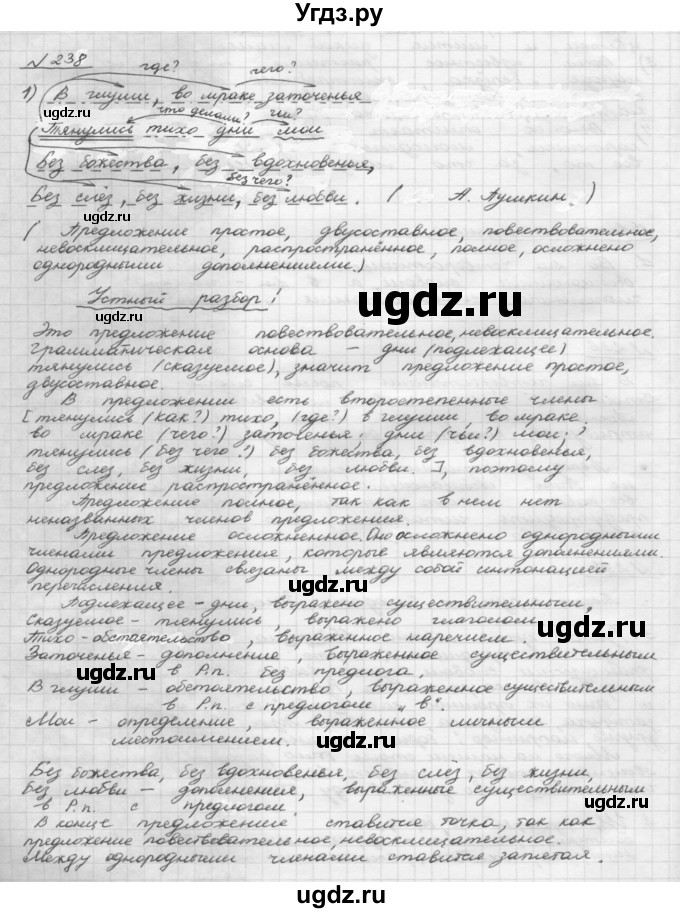 Угдз.ру
№ 238 где? чего?
1) В глуши, во мраке заточенья
что делали? чьи?
Тянулись тихо дни мои
Без божества, без вдохновенья,
без чего?
Без слёз, без жизни, без любви. ( А. Пушкин )
( Предложение простое, двусоставное, повествовательное,
невосклицательное, распространённое, полное, осложнено
однородными дополнениями.)
Устный разбор!
Это предложение повествовательное, невосклицательное.
Грамматическая основа – дни (подлежащее)
тянулись (сказуемое), значит предложение простое,
двусоставное.
В предложении есть второстепенные члены
[ тянулись (как?) тихо, (где?) в глуши, во мраке;
во мраке (чего?) заточенья; дни (чьи?) мои;
тянулись (без чего?) без божества, без вдохновенья,
без слез, без жизни, без любви. ], поэтому
предложение распространённое.
Предложение полное, так как в нем нет
неназванных членов предложения.
Предложение осложнённое. Оно осложнено однородными
членами предложения, которые являются дополнениями.
Однородные члены связаны между собой интонацией
перечисления.
Подлежащее – дни, выражено существительным,
Сказуемое – тянулись, выражено глаголом.
Тихо – обстоятельство, выраженное наречием.
Заточенья – дополнение, выраженное существительным
в Р.п. без предлога.
В глуши – обстоятельство, выраженное существительным
в Р.п. с предлогом „в“.
Мои – определение, выраженное личным
местоимением.
Без божества, без вдохновенья, без слёз, без жизни,
Без любви – дополнения, выраженные существительным
в Р.п. с предлогом.
В конце предложение ставится точка, так как
предложение повествовательное, невосклицательное.
Между однородными членами ставится запятая.
ugdz.ru
ugdz.ru
ugdz.ru
ugdz.ru
ugdz.ru
ugdz.ru
ugdz.ru
ugdz.ru
ugdz.ru
ugdz.ru
ugdz.ru
ugdz.ru
ugdz.ru
ugdz.ru